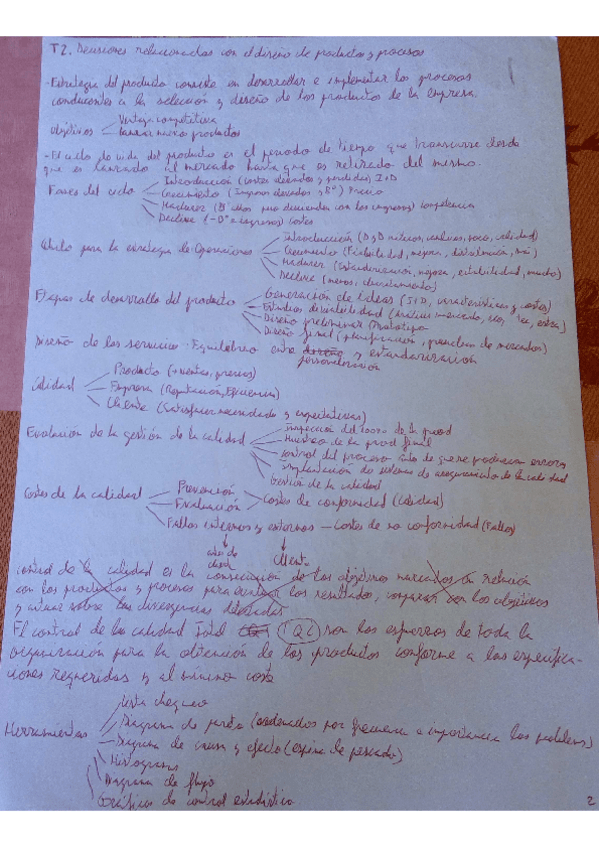 T2. Decisiones relacionadas con el diseño de productos y procesos
-Estrategia del producto consiste en desarrollar e implementar los procesos
conducentes a la selección y diseño de los productos de la empresa.
Objetivos
Ventaja competitiva
nuevos productos
-El ciclo de vida del producto es el periodo de tiempo que transcurre desde
que es lanzado al mercado hasta que es retirado del mismo.
Fases del ciclo
Introducción (costes elevados y pérdidas) I+D
Crecimiento (Ingresos elevados y Bº) Precio
Madurez
competencia
Declive (-Dº e ingresos) Costes
para la estrategia de Operaciones
Introducción
calidad)
Crecimiento
Madurez (Estandarización, mejora, estabilidad,
Declive (menos,
Etapas de desarrollo del producto
Generación de ideas (I+D, características y costes)
Estudios de viabilidad (Análisis mercado,
Diseño preliminar Prototipo
Diseño final (planificación, pruebas de mercados)
Diseño de los servicios: Equilibrio entre diseño y estandarización
personalización
Calidad
Producto (+ventas, precios)
Empresa (Reputación, Eficiencia)
Cliente (Satisfacer necesidades y expectativas)
Evaluación de la gestión de la calidad
Inspección del 100% de la prod
Muestreo de la prod final
Control del proceso antes de que se produzcan errores
Implantación de sistemas de aseguramiento de la calidad
Gestión de la calidad
Costes de la calidad
Prevención
Evaluación
Costes de conformidad (Calidad)
Fallos internos y externos — Costes de no conformidad (Fallos)
antes de
client
Cliente
Control de la calidad es la consecución de los objetivos marcados en relación
con los productos y procesos para evaluar los resultados, comparar con los objetivos
y actuar sobre las divergencias detectadas
El control de la calidad Total (TQC) son los esfuerzos de toda la
organización para la obtención de los productos conforme a las especifica-
ciones requeridas y al mínimo coste
Herramientas
Lista chequeo
Diagrama de pareto (ordenados por frecuencia e importancia los problemas)
Diagrama de causa y efecto (espina de pescado)
Histograma
Diagrama de flujo
Gráficos de control estadístico
2